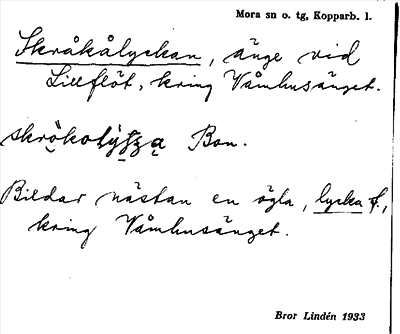 Mora sn o. tg, Kopparb. l.
Skråkålyckan, änge vid
Lillflöt, kring Våmhusänget.
Bon.
Bildar nästan en ögla, lycka f.,
kring Våmhusänget.
Bror Lindén 1933